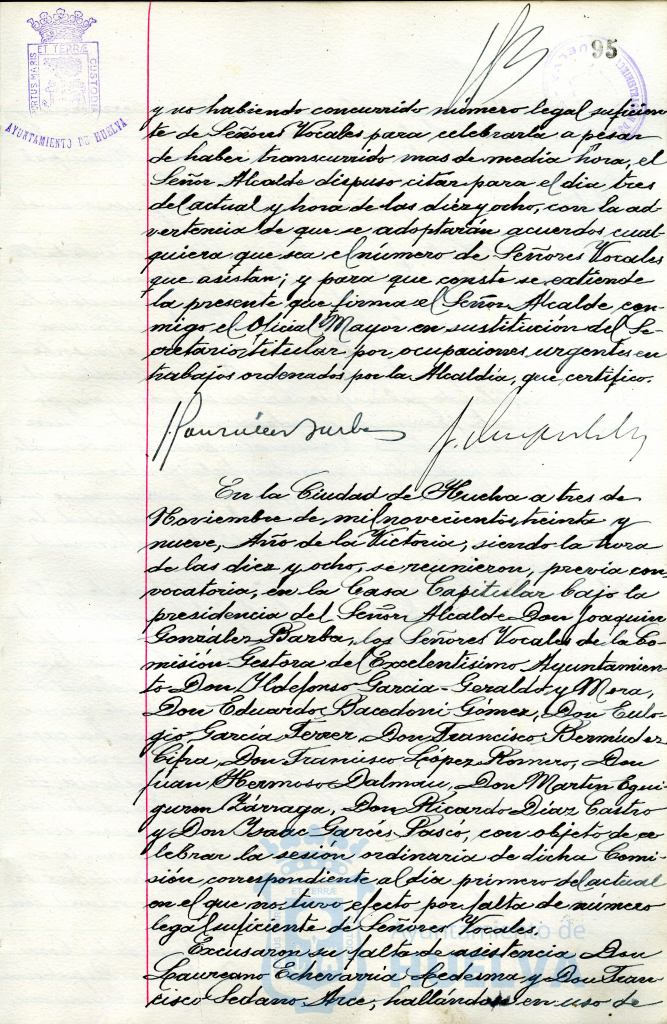 95
ET TERRÆ
PORTUS MARIS
CUSTODIA
AYUNTAMIENTO DE HUELVA
y no habiendo concurrido número legal suficien
te de Señores Vocales para celebrarla a pesar
de haber transcurrido mas de media hora, el
Señor Alcalde dispuso citar para el dia tres
del actual y hora de las diez y ocho, con la ad-
vertencia de que se adoptarán acuerdos cual-
quiera que sea el número de Señores Vocales
que asistan; y para que conste se extiende
la presente que firma el Señor Alcalde, con-
migo el Oficial Mayor en sustitución del Se-
cretario titular por ocupaciones urgentes en
trabajos ordenados por la Alcaldía, que certifico.
En la Ciudad de Huelva a tres de
Noviembre de mil novecientos treinta y
nueve, Año de la Victoria, siendo la hora
de las diez y ocho, se reunieron, previa con
vocatoria, en la Casa Capitular bajo la
presidencia del Señor Alcalde Don Joaquin
González Barba, los Señores Vocales de la Co-
misión Gestora del Excelentisimo Ayuntamien-
to Don Ildefonso Garcia-Geraldo y Mera,
Don Eduardo Bacedoni Gómez, Don Eulo-
gio García Ferrer, Don Francisco Bermúdez
Cifra, Don Francisco López Romero, Don
Juan Hermoso Dalmau, Don Martin Egui-
guren Zárraga, Don Ricardo Díaz Castro
y Don Isaac Garcés Pascó, con objeto de ce
lebrar la sesión ordinaria de dicha Comi-
sión correspondiente al dia primero del actual
en el que no tuvo efecto por falta de número
legal suficiente de Señores Vocales.
Excusaron su falta de asistencia Don
Laureano Echevarria Ledesma y Don Fran-
cisco Sedano Arce, hallándose en uso de
Ayuntamiento de
HUELVA